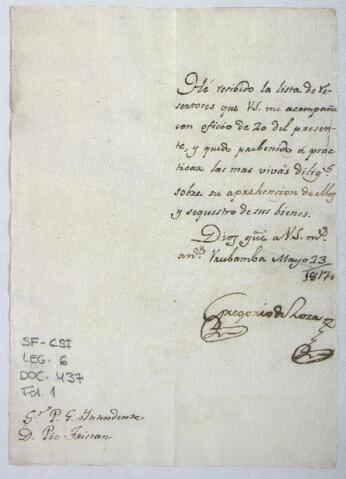 Hé resibido la lista de De-
sertores que VS. me acompaña
con oficio de 20 del presen-
te, y quedo prebenido á prac-
ticar las mas vivas diligs.
sobre su aprehension de
y sequestro de sus bienes.
Dios gue. a VS. ms.
as. Urubamba Mayo 23
1817
Gregorio de Loza
SF-CSI
LEG. 6
DOC. 437
Fol. 1
Sr. P. G. Yntendente
D. Pio Tristan